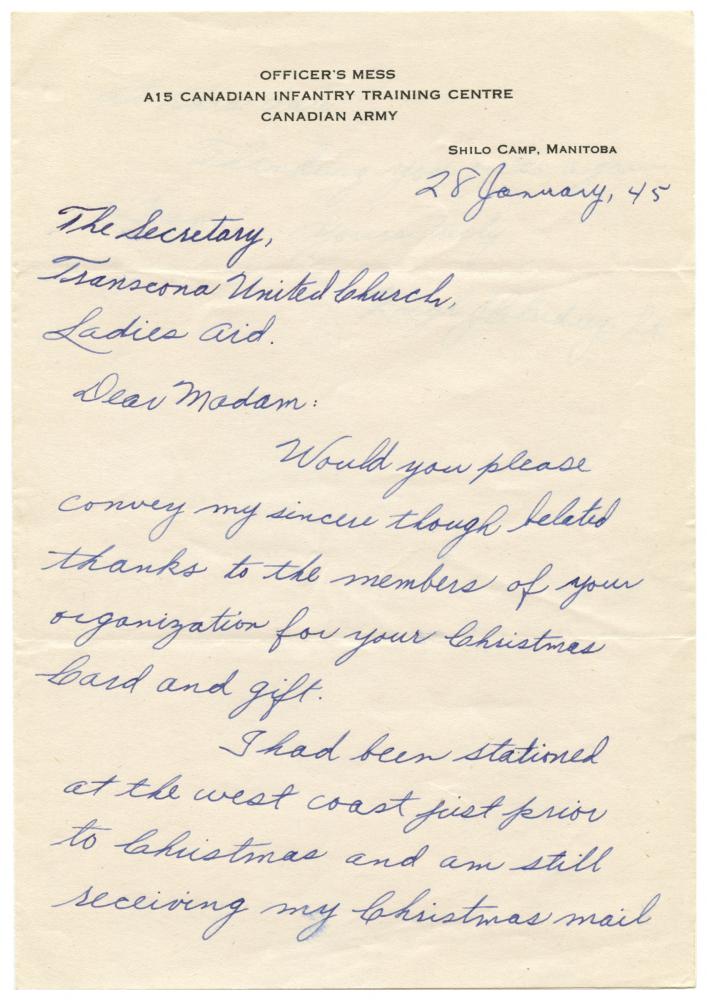 OFFICER'S MESS
A15 CANADIAN INFANTRY TRAINING CENTRE
CANADIAN ARMY
SHILO CAMP, MANITOBA
28 January, 45
The Secretary,
Transcona United Church,
Ladies Aid.
Dear Madam:
Would you please
convey my sincere though belated
thanks to the members of your
organization for your Christmas
Card and gift.
I had been stationed
at the west coast just prior
to Christmas and am still
receiving my Christmas mail